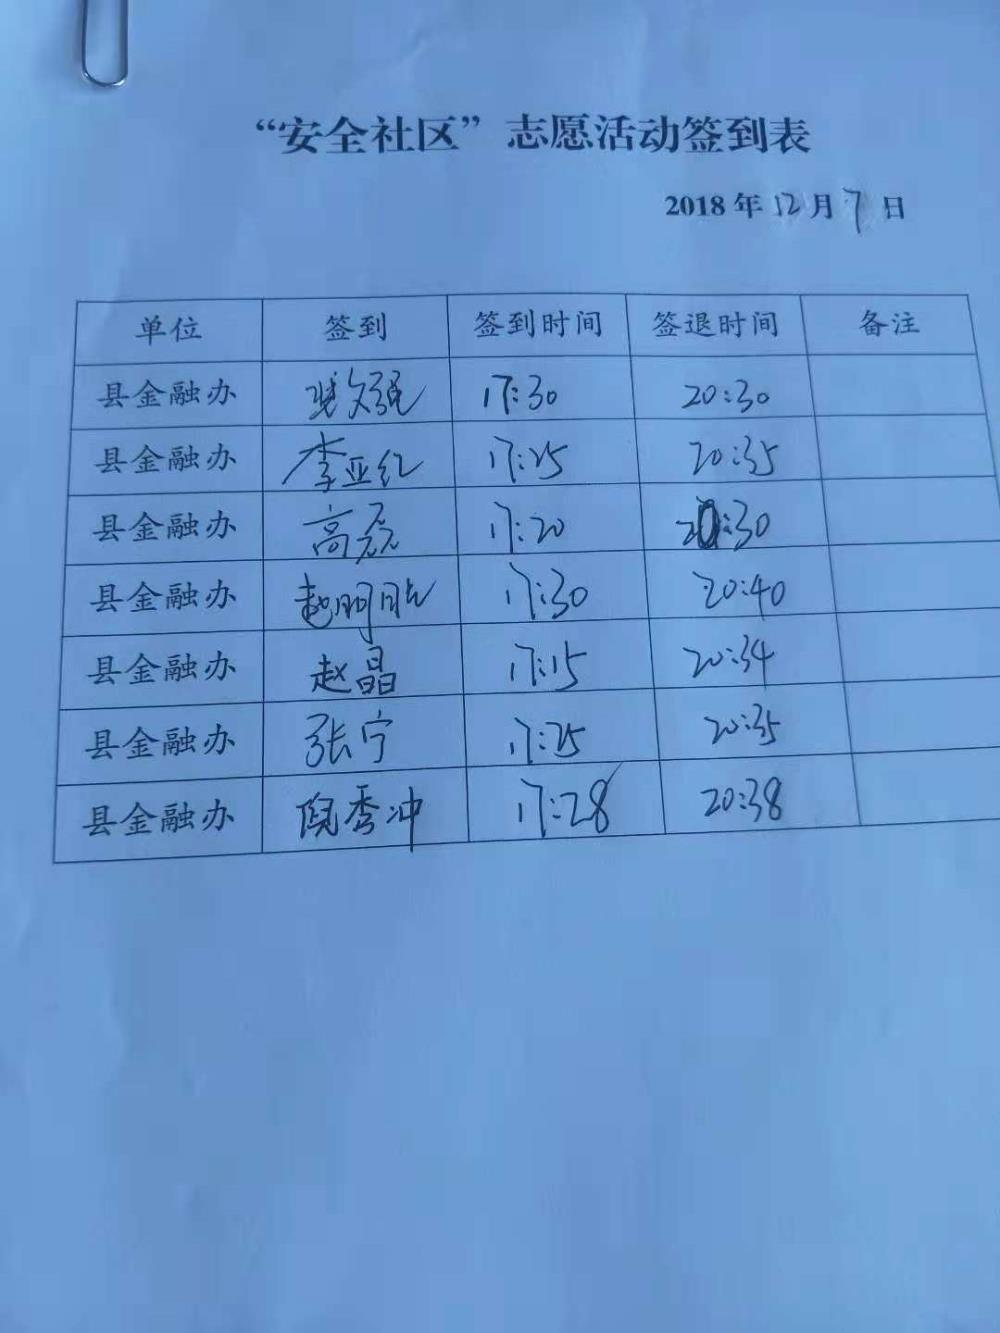 “安全社区”志愿活动签到表
2018 年 12 月 7 日
单位 签到 签到时间 签退时间 备注
县金融办 文强 17:30 20:30
县金融办 李亚红 17:25 20:35
县金融办 高磊 17:20 20:30
县金融办 赵明 17:30 20:40
县金融办 赵晶 17:15 20:34
县金融办 张宁 17:25 20:35
县金融办 倪秀冲 17:28 20:38